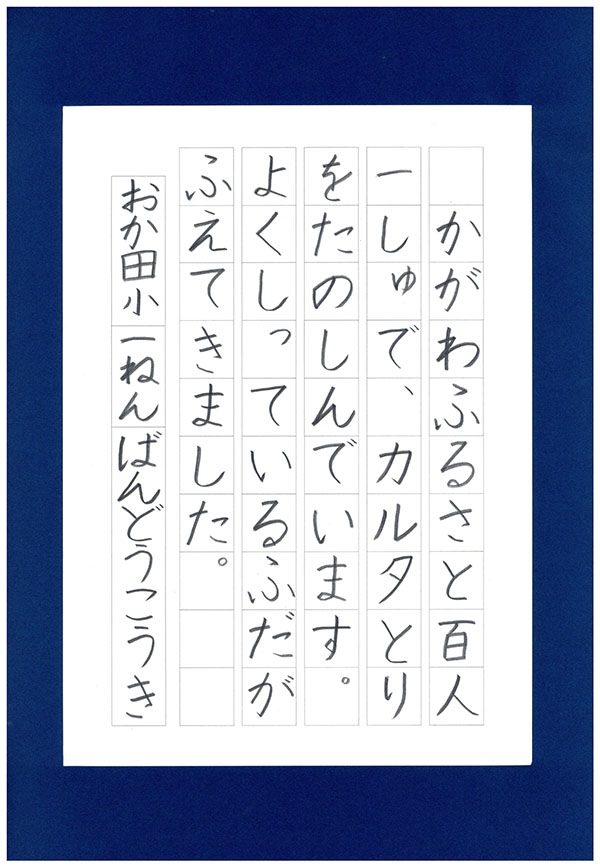 かがわふるさと百人
一しゅで、カルタとり
をたのしんでいます。
よくしっているふだが
ふえてきました。
おか田小 一ねん ばんどうこうき